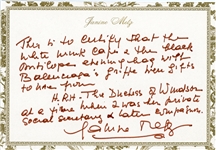 Janine Metz
This is to certify that the
white mink cape & the black
antilope evening bag with
Balenciaga's griffe were gifts
to me from
H.R.H. The Duchess of Windsor
at a time when I was her private
social secretary & later companion.
Janine Metz